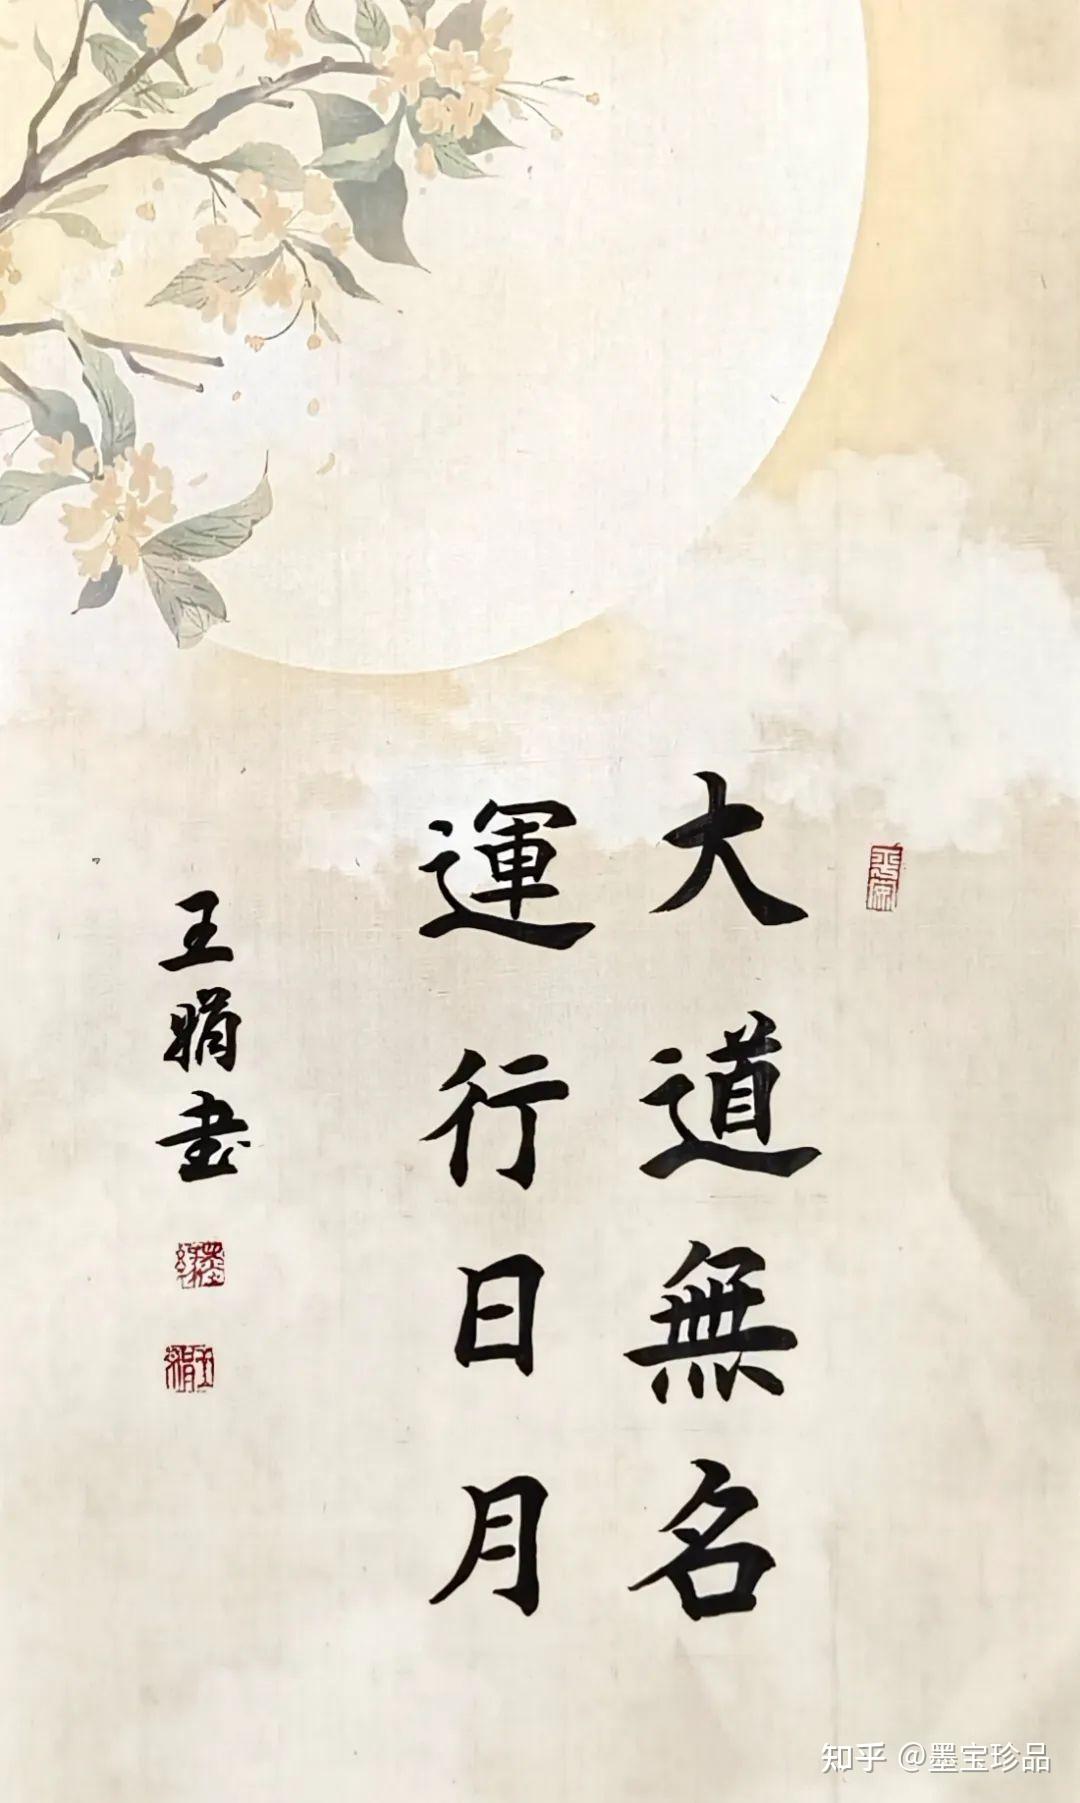 大道無名
運行日月
王娟书
知乎 @墨宝珍品